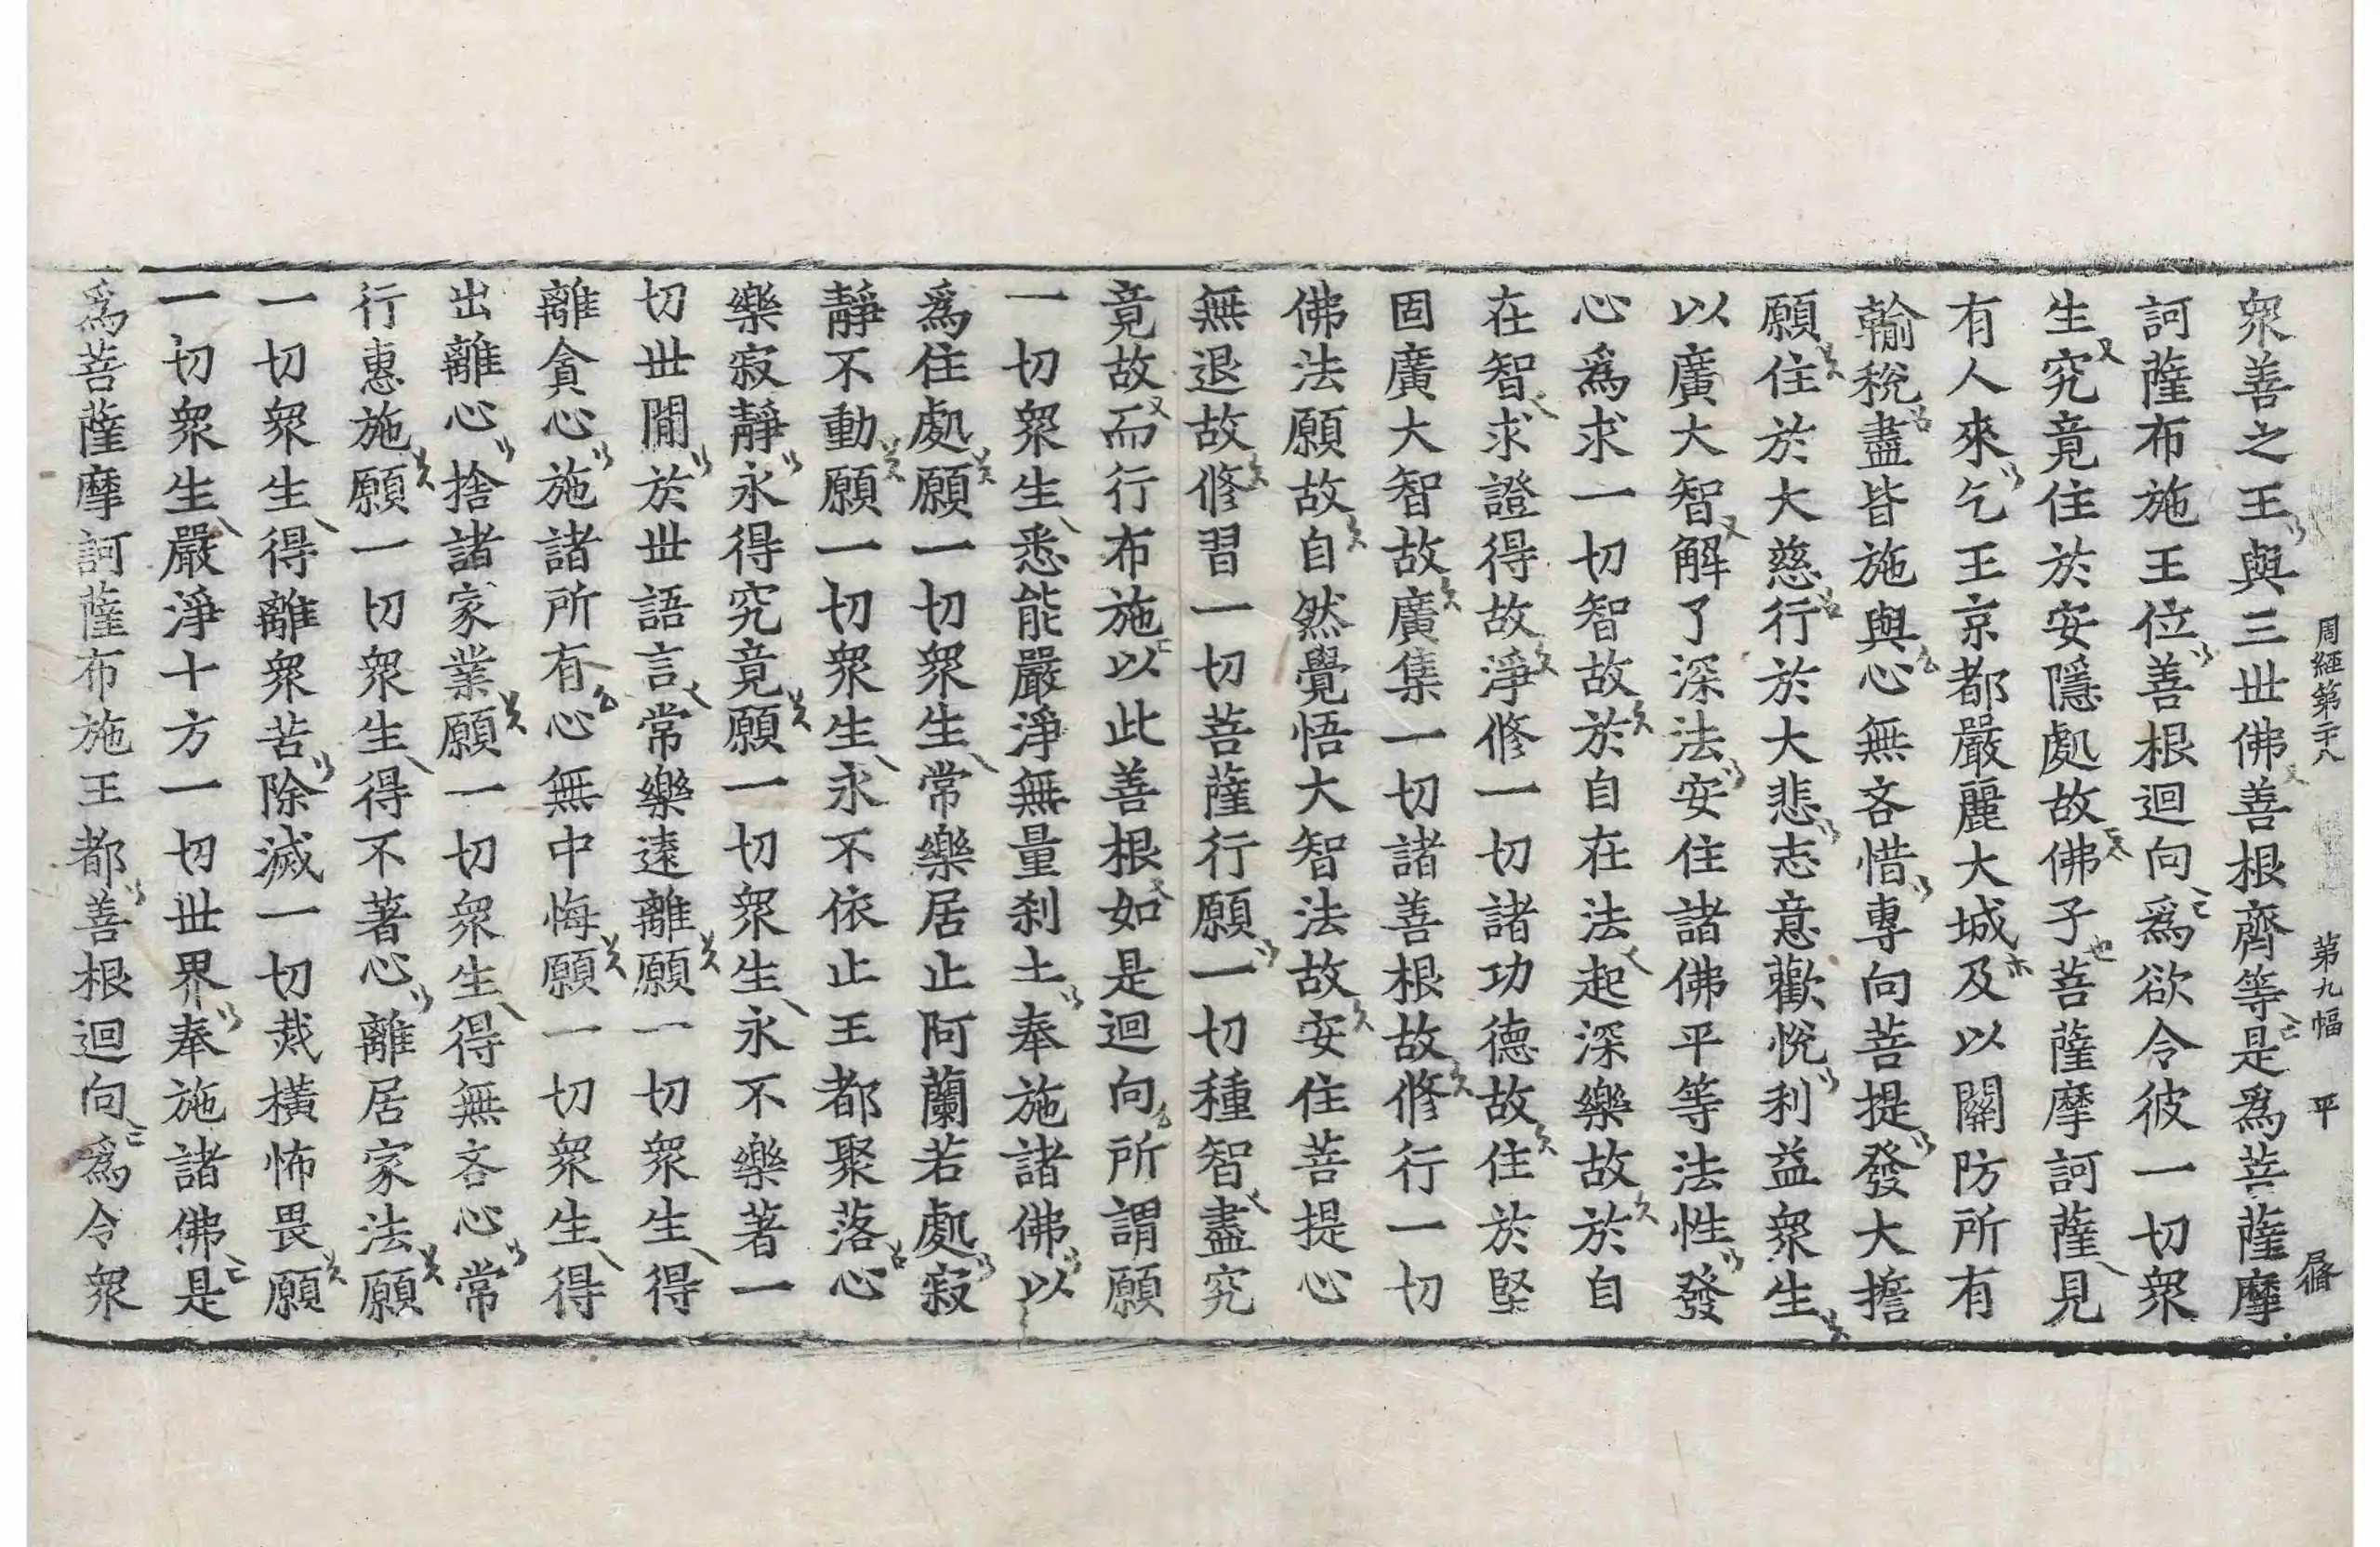 周經第二十八 第九幅 平
衆善之王與三世佛善根齊等是爲菩薩摩
訶薩布施王位善根迴向爲欲令彼一切衆
生究竟住於安隱處故佛子菩薩摩訶薩見
有人來乞王京都嚴麗大城及以關防所有
輸稅盡皆施與心無吝惜專向菩提發大擔
願住於大慈行於大悲志意歡悅利益衆生
以廣大智解了深法安住諸佛平等法性發
心爲求一切智故於自在法起深樂故於自
在智求證得故淨修一切諸功德故住於堅
固廣大智故廣集一切諸善根故修行一切
佛法願故自然覺悟大智法故安住菩提心
無退故修習一切菩薩行願一切種智盡究
竟故而行布施以此善根如是迴向所謂願
一切衆生悉能嚴淨無量刹土奉施諸佛以
爲住處願一切衆生常樂居止阿蘭若處寂
靜不動願一切衆生永不依止王都聚落心
樂寂靜永得究竟願一切衆生永不樂著一
切世閒於世語言常樂遠離願一切衆生得
離貪心施諸所有心無中悔願一切衆生得
出離心捨諸家業願一切衆生得無吝心常
行惠施願一切衆生得不著心離居家法願
一切衆生得離衆苦除滅一切烖橫怖畏願
一切衆生嚴淨十方一切世界奉施諸佛是
爲菩薩摩訶薩布施王都善根迴向爲令衆